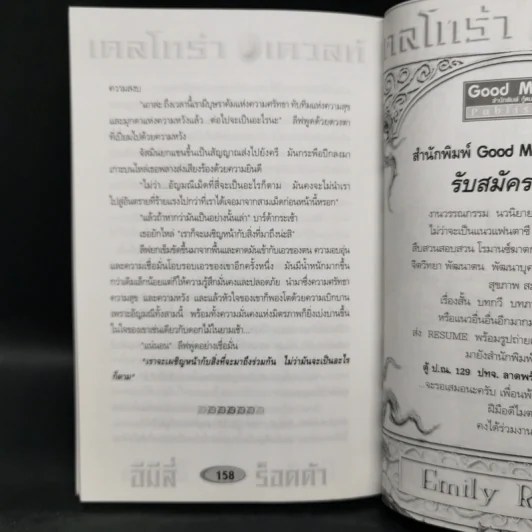 เดลโทร่า เควสท์
ความสงบ
"เอาละ ถึงเวลานี้เรามีบุษราคัมแห่งความศรัทธา ทับทิมแห่งความสุข
และมุกดาแห่งความหวังแล้ว ต่อไปจะเป็นอะไรนะ" ลีฟพูดด้วยดวงตา
ที่เปี่ยมไปด้วยความหวัง
จัสมินยกแขนขึ้นเป็นสัญญาณส่งไปยังครี มันกระพือปีกลงมา
เกาะบนไหล่เธอพลางส่งเสียงร้องด้วยความยินดี
"ไม่ว่า...อัญมณีเม็ดที่สี่จะเป็นอะไรก็ตาม มันคงจะไม่นำเรา
ไปสู่อันตรายที่ร้ายแรงไปกว่าที่เราได้เจอมาจากสามเม็ดก่อนหน้านี้หรอก"
"แล้วถ้าหากว่ามันเป็นอย่างนั้นล่ะ" บาร์ด้ากระเซ้า
เธอยักไหล่ "เราก็จะเผชิญหน้ากับสิ่งที่มาถึงน่ะสิ"
ลีฟยกเข็มขัดขึ้นมาจากพื้นและคาดมันเข้ากับเอวของตน ความอบอุ่น
และความเชื่อมั่นโอบรอบเอวของเขาอีกครั้งหนึ่ง มันมีน้ำหนักมากขึ้น
กว่าเดิมเล็กน้อยแต่ก็ให้ความรู้สึกมั่นคงและปลอดภัย นำมาซึ่งความศรัทธา
ความสุข และความหวัง และแล้วหัวใจของเขาก็พองโตด้วยความเบิกบาน
เพราะอัญมณีทั้งสามนี้ พร้อมทั้งความมั่นคงแห่งมิตรภาพก็ยิ่งเบ่งบานขึ้น
ในใจของเขาเช่นเดียวกับดอกไม้ในยามเช้า...
"แน่นอน" ลีฟพูดอย่างเชื่อมั่น
"เราจะเผชิญหน้ากับสิ่งที่จะมาถึงร่วมกัน ไม่ว่ามันจะเป็นอะไร
ก็ตาม"
อีมีลี่ 158 ร็อดด้า
เดลโทร่า
Good M
สำนักพิมพ์
สำนักพิมพ์ Good M
รับสมัคร
งานวรรณกรรม นวนิยาย
ไม่ว่าจะเป็นแนวแฟนตาซี
สืบสวนสอบสวน โรมานซ์ฆาตก
จิตวิทยา พัฒนาตน พัฒนาบุค
สุขภาพ
เรื่องสั้น บทกวี บทภา
หรือแนวอื่นอื่นอีกมาก
ส่ง RESUME พร้อมรูปถ่าย
มายังสำนักพิมพ์
ตู้ ป.ณ. 129 ปทจ. ลาดพร้
...จะรอเสมอนะครับ เพื่อน
ฝีมือดีไม
คงได้ร่วมงาน
Emily R